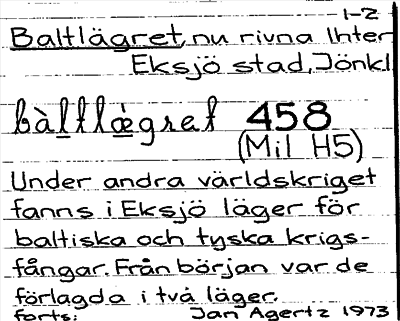 1-2
Baltlägret, nu rivna Inter
Eksjö stad, Jönkl
bàltlǽgret 458
(Mil H5)
Under andra världskriget
fanns i Eksjö läger för
baltiska och tyska krigs-
fångar. Från början var de
förlagda i två läger.
forts: Jan Agertz 1973